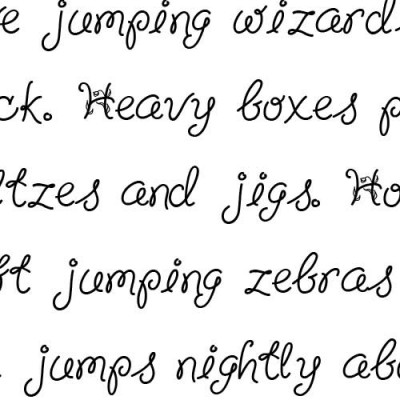 jumping wizards
ck. Heavy boxes p
ltzes and jigs. Ho
ft jumping zebras
jumps nightly abo